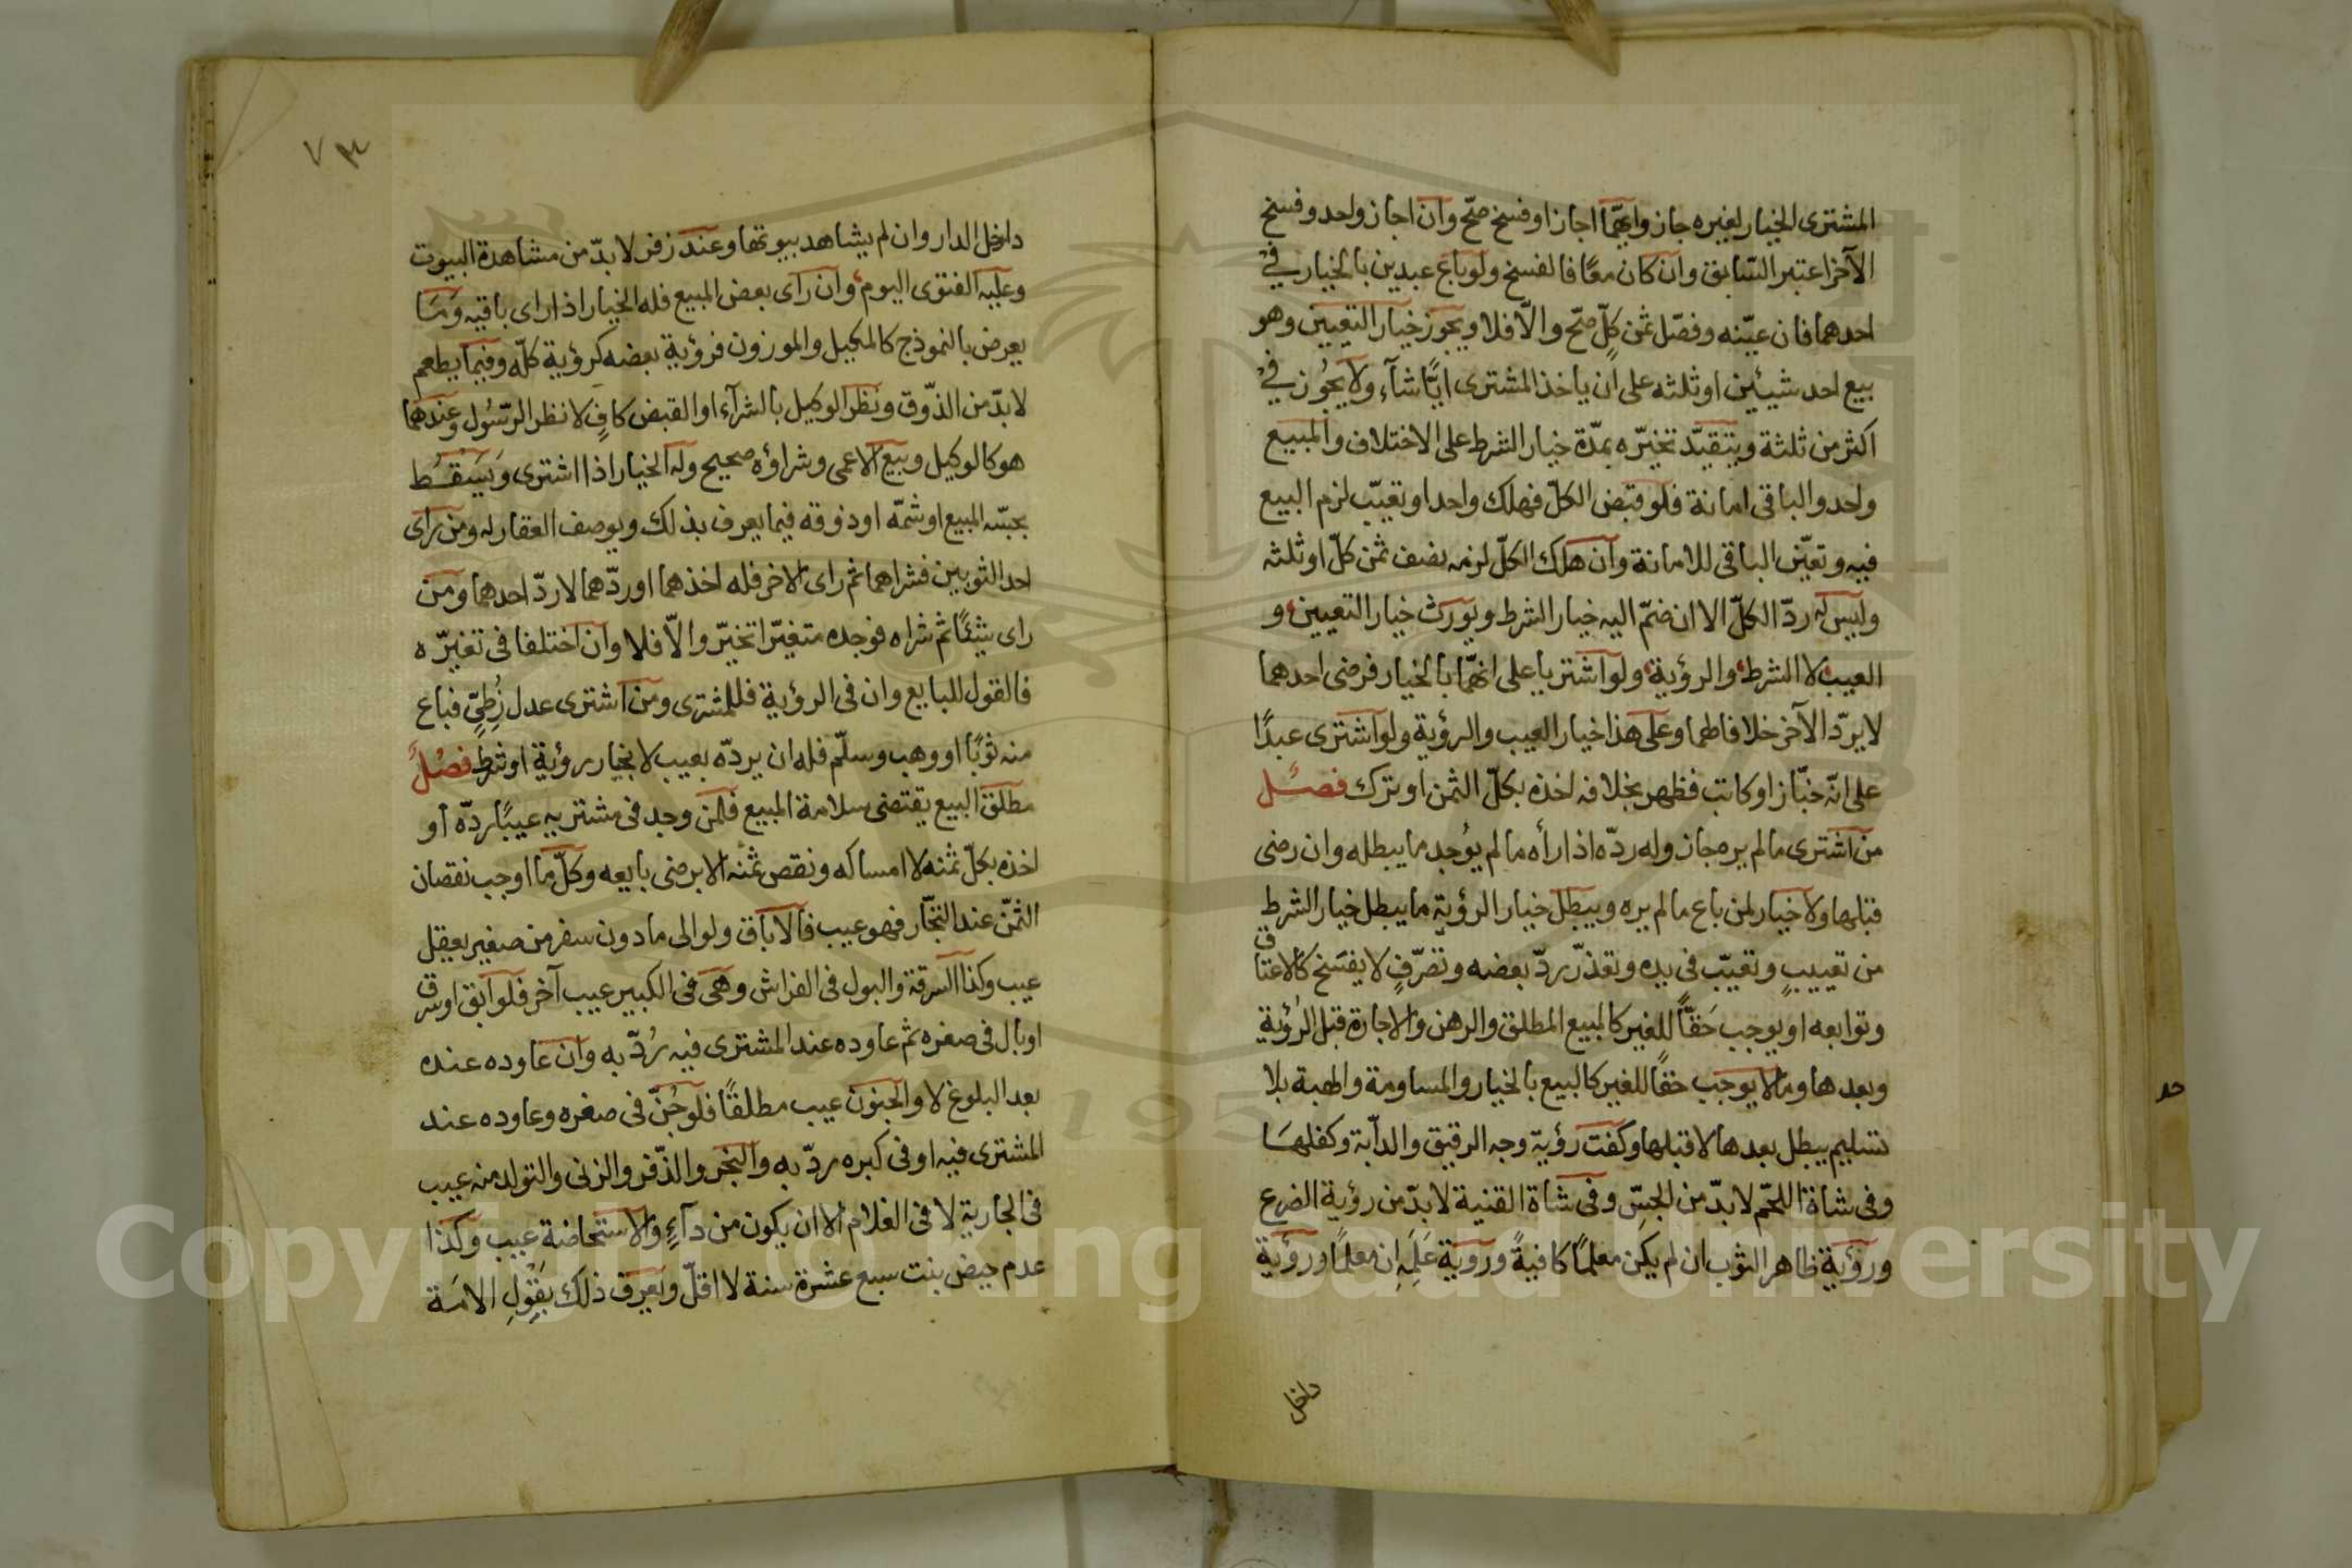 المشترى الخيار لغيره جاز وايهما اجاز او فسخ صحّ وان اجاز واحد وفسخ
الآخر اعتبر السّابق وان كان معًا فالفسخ ولو باع عبدين بالخيار فى
احدهما فان عيّنه وفصّل ثمن كلٍّ صحّ والّا فلا ويجوز خيار التعيين وهو
بيع احد شيئين او ثلثه على ان ياخذ المشترى ايًّا شآء ولا يجُوز فى
اكثر من ثلثة ويتقيّد تخيّره بمدّة خيار الشرط على الاختلاف والمبيع
واحد والباقى امانة فلو قبض الكلّ فهلك واحد او تعيّب لزم البيع
فيه وتعيّن الباقى للامانة وان هلك الكلّ لزمه نصف ثمن كلّ او ثلثه
وليس له ردّ الكلّ الا ان ضمّ اليه خيار الشرط ويورث خيار التعيين و
العيب لا الشرط والرؤية ولو اشتريا على انهّما بالخيار فرضى احدهما
لا يردّ الآخر خلافا لهما وعلى هذا خيار العيب والرؤية ولو اشترى عبدًا
على انّه خبّاز او كاتب فظهر بخلافه اخذه بكلّ الثمن او ترك فصل
من اشترى مالم يره جاز وله ردّه اذا رأه مالم يوُجد ما يبطله وان رضى
قبلها ولا خيار لمن باع مالم يره ويبطل خيار الرؤية ما يبطل خيار الشرط
من تعييبٍ وتعيّب فى يده وتعذّر ردّ بعضه وتصرّفٍ لا يفسَخ كالاعتاق
وتوابعه او يوجب حَقًّا للغير كالمبيع المطلق والرهن والاجارة قبل الرُؤية
وبعدها وما لا يوجب حقًا للغير كالبيع بالخيار والمساومة والهبة بلا
تسليم يبطل بعدها لا قبلها وكفت رؤية وجه الرقيق والدآبة وكفلهَا
وفى شاة اللحّم لا بدّ من الجسّ وفى شاة القنية لا بدّ من رؤية الضرع
ورؤية ظاهر الثوب ان لم يكن معلمًا كافيةً وروية عَلَمِه ان معلمًا ورؤية
داخل
٧٣
داخل الدار وان لم يشاهد بيوتها وعند زفر لا بدّ من مشاهدة البيوت
وعليه الفتوى اليوم وان رأى بعض المبيع فله الخيار اذا راى باقيه وَمَا
يعرض بالنموذج كالمكيل والموزون فرؤية بعضه كرؤية كلّه وفيما يطعم
لا بدّ من الذّوق ونظر الوكيل بالشرآء او القبض كافٍ لا نظر الرّسُول وعندهما
هو كالوكيل وبيع الاعمى وشراؤه صحيح وله الخيار اذا اشترى وَيَسقُط
بجسّه المبيع او شمّه او ذوقه فيما يعرف بذلك وبوصف العقار له ومن راى
احد الثوبين فشراهما ثم راى الاخر فله اخذهما او ردّهما لا ردّ احدهما ومن
راى شيئًا ثم شراه فوجده متغيّرا تخيّر والّا فلا وان اختلفا فى تغيّره
فالقول للبايع وان فى الرؤية فللمشترى ومن اشترى عدل زُطّيٍّ فباع
منه ثوبًا او وهب وسلّم فله ان يردّه بعيب لا بخيار رؤية او شرط فصلٌ
مطلق البيع يقتضى سلامة المبيع فلمن وجد فى مشتريه عيبًا ردّه أو
اخذه بكلّ ثمنه لا امساكه ونقص ثمنه الا برضى بايعه وكلّ ما اوجب نقصان
الثمّن عند التجّار فهو عيب فالاباق ولو الى ما دون سفر من صغير يعقل
عيب وكذا السرقة والبول فى الفراش وهى فى الكبير عيب آخر فلو ابق او سرق
او بال فى صغره ثم عاوده عند المشترى فيه رُدّ به وان عاوده عنده
بعد البلوغ لا والجنون عيب مطلقًا فلو جُنّ فى صغره وعاوده عند
المشترى فيه او فى كبره ردّ به والبخر والذّفر والزنى والتولد منه عيب
فى الجارية لا فى الغلام الا ان يكون من دآءٍ والاستحاضة عيب وكذا
عدم حيض بنت سبع عشرة سنة لا اقلّ ويعرف ذلك بقولِ الامَة
Copyright © King Saud University
195